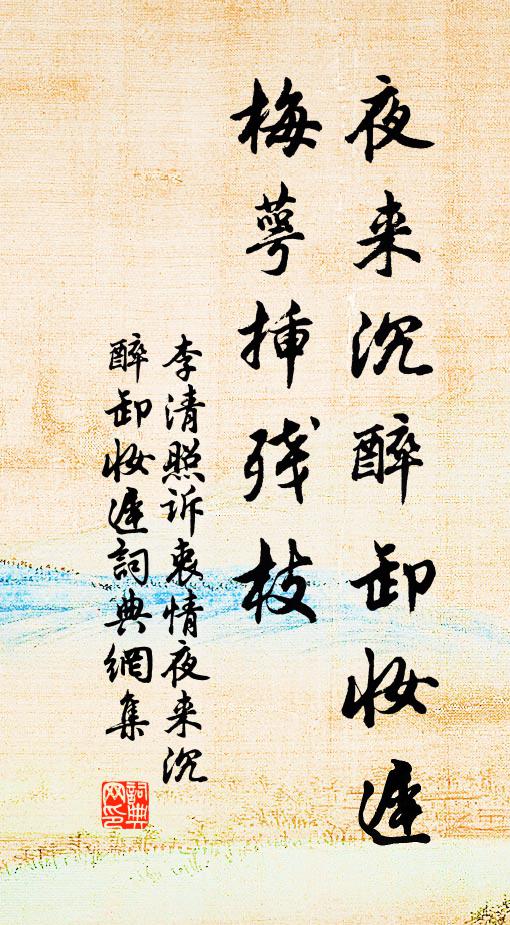 夜来沉醉卸妆遲
梅萼挿残枝
李清照诉衷情夜来沉
醉卸妆遲詞典網集
詞典
网印